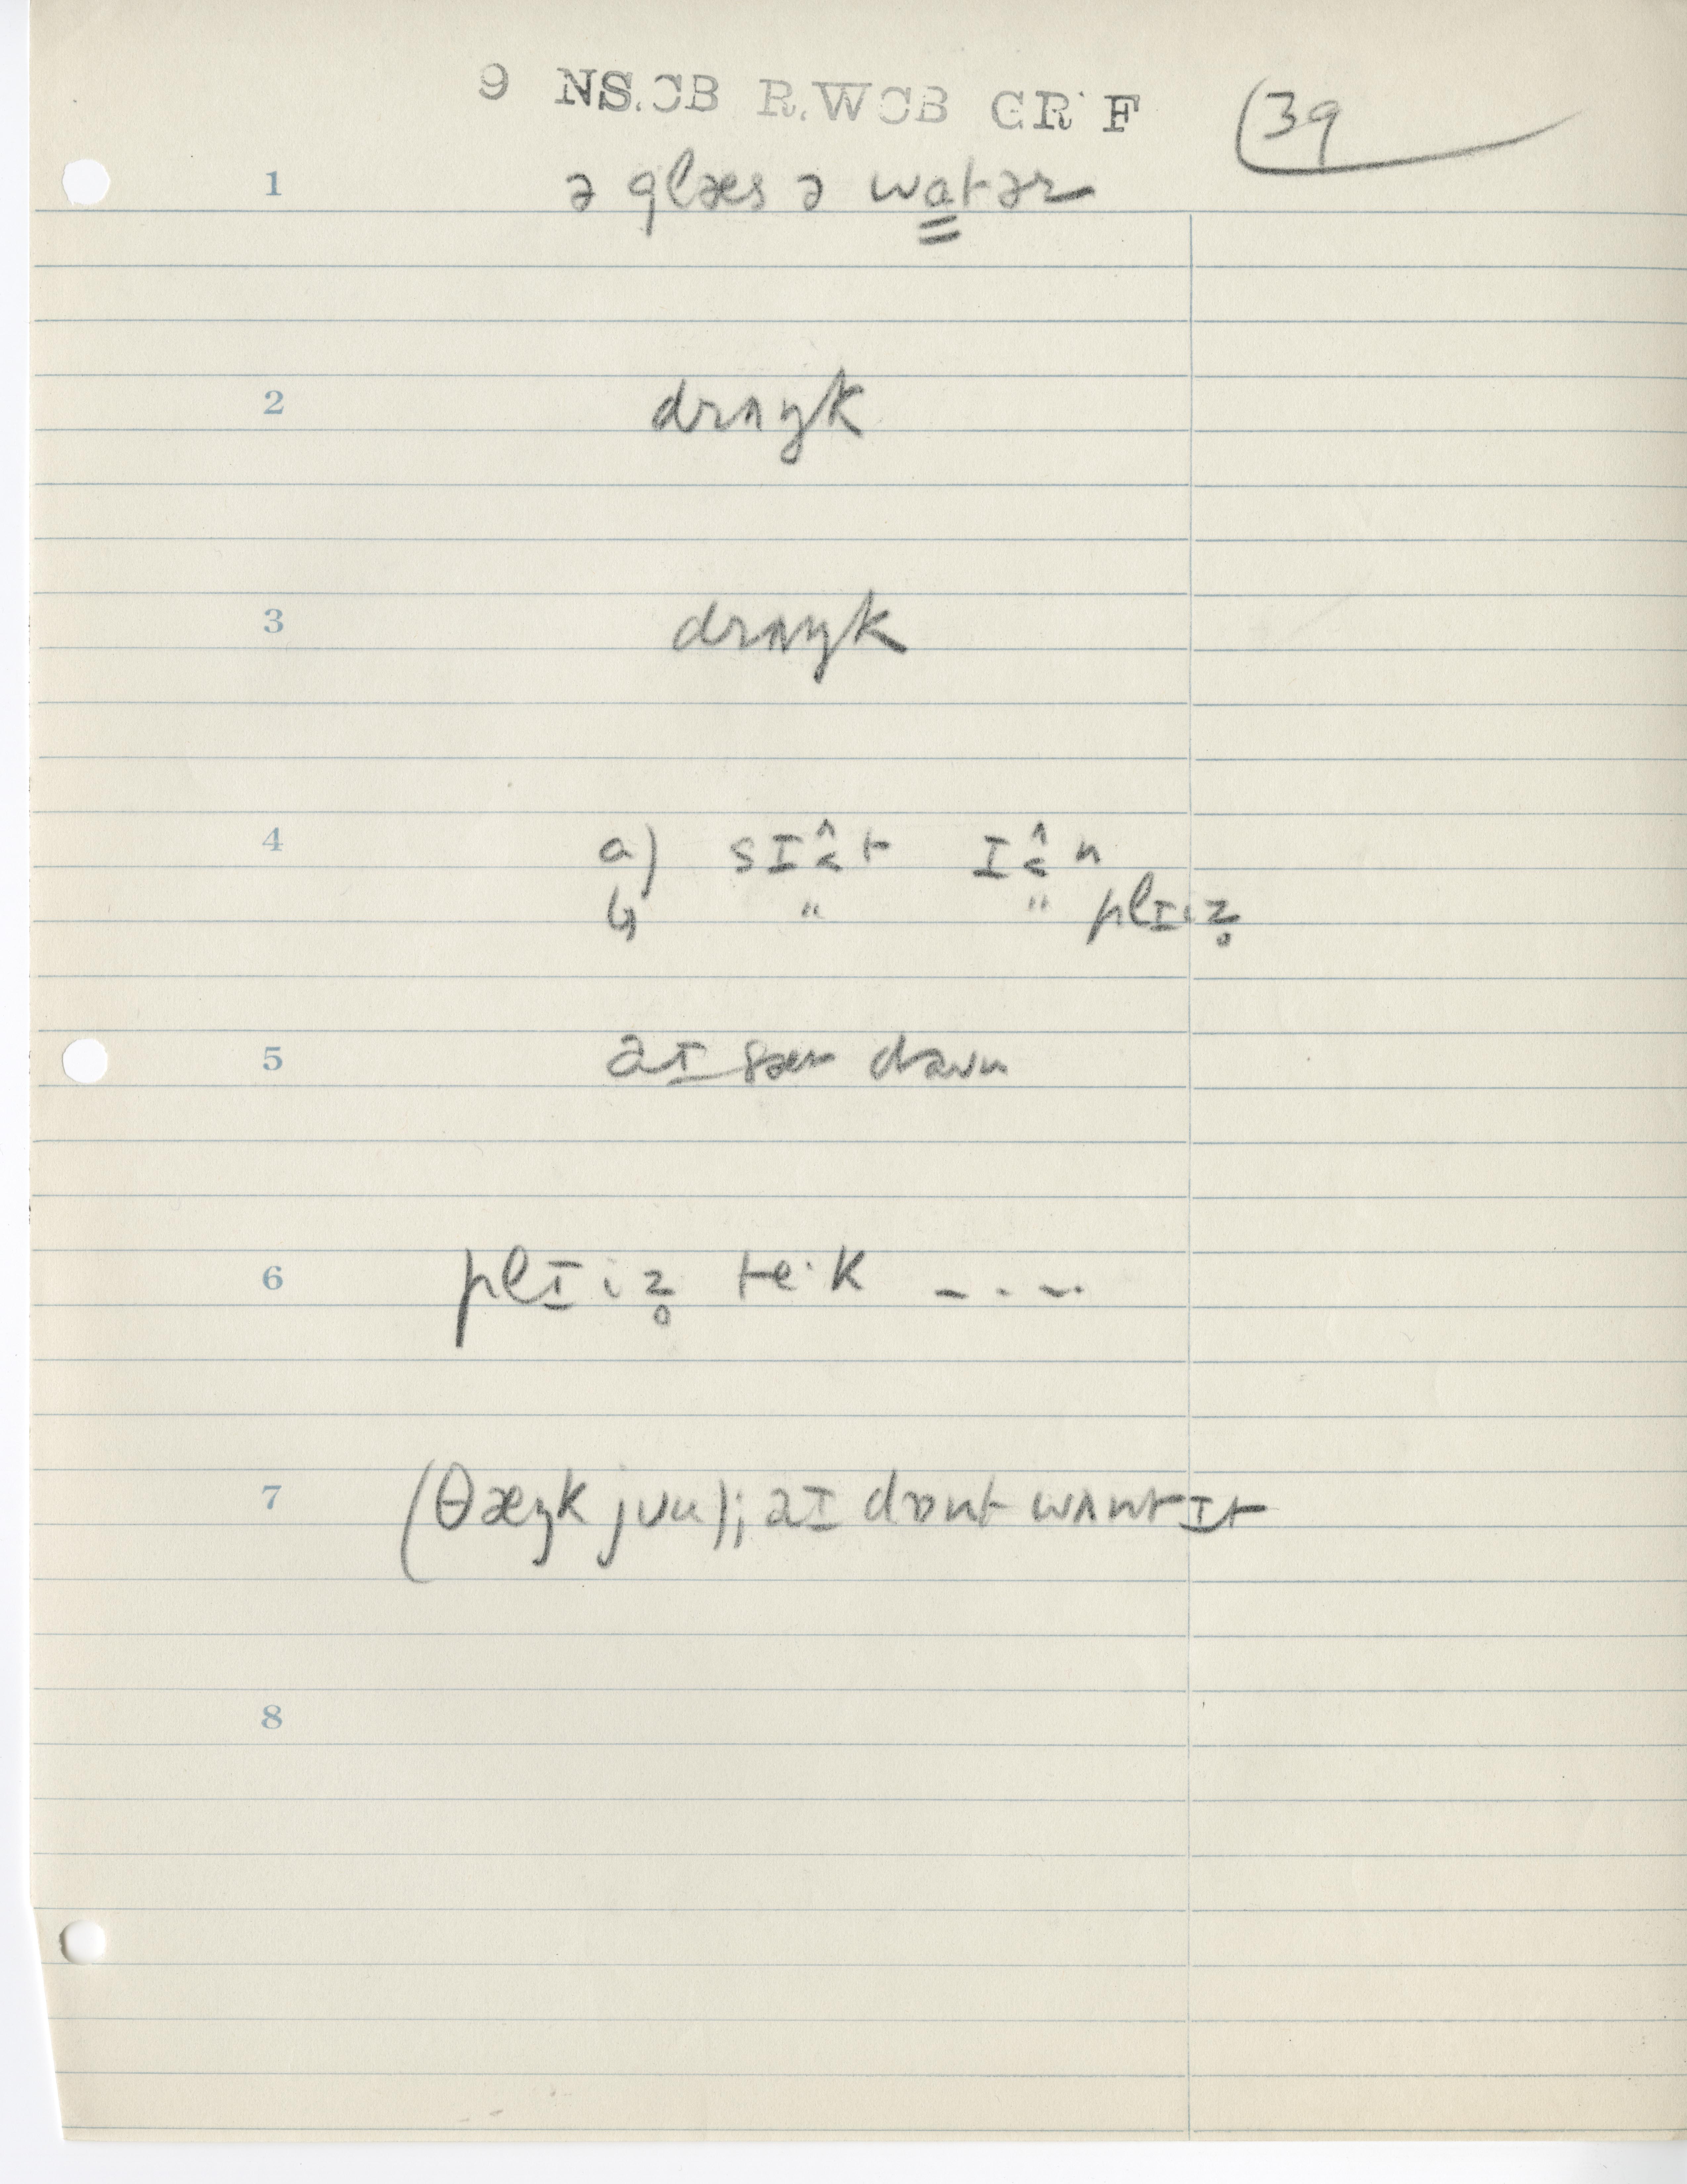 9 NS.CB R.WCB GR F (39
1 ə glæs ə wa̳tər
2 drʌŋk
3 drʌŋk
4 a) sɪə̂t ɪə̂n
b) " " plɪiz̥
5 aɪ sæt daʊn
6 plɪiz̥ te·k - . - .
7 (θæŋk jʊu); aɪ dont wʌnt ɪt
8